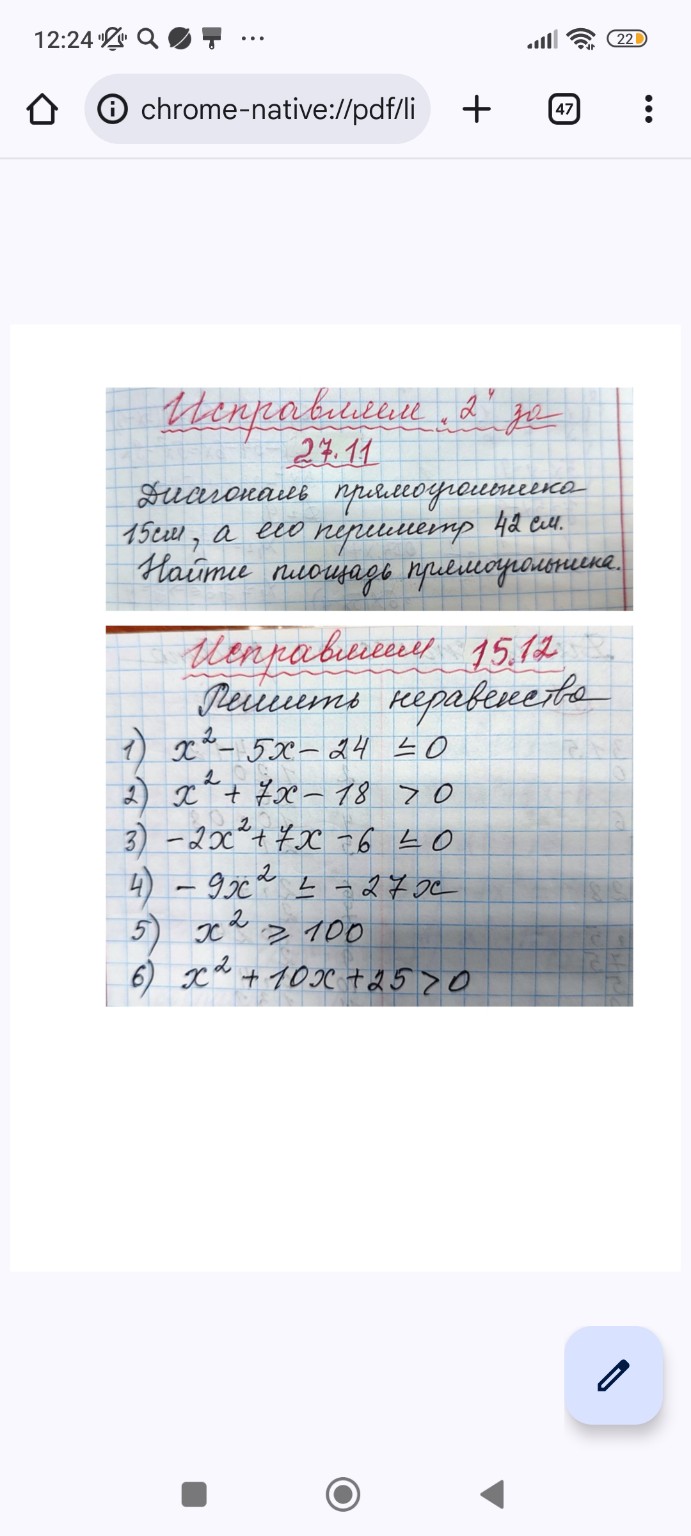 12:24
22
chrome-native://pdf/li
47
Исправляем „2" за
27.11
Диагональ прямоугольника
15см, а его периметр 42 см.
Найти площадь прямоугольника.
Исправляем 15.12
Решить неравенства
1) x² - 5x - 24 ≤ 0
2) x² + 7x - 18 > 0
3) -2x² + 7x - 6 ≤ 0
4) - 9x² ≤ - 27x
5) x² ⩾ 100
6) x² + 10x + 25 > 0